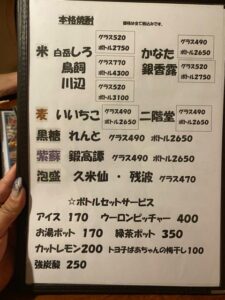 本格焼酎
価格は全て税込みです。
米 白岳しろ グラス520 ボトル2750 かなた グラス490 ボトル2650
鳥飼 グラス770 ボトル4300 銀香露 グラス520 ボトル2750
川辺 グラス520 ボトル3100
麦 いいちこ グラス490 ボトル2650 二階堂 グラス490 ボトル2650
黒糖 れんと グラス490 ボトル2650
紫蘇 鍛高譚 グラス490 ボトル2650
泡盛 久米仙・残波 グラス470
☆ボトルセットサービス
アイス 170 ウーロンピッチャー 400
お湯ポット 170 緑茶ポット 350
カットレモン200 トヨ子ばあちゃんの梅干し100
強炭酸 250